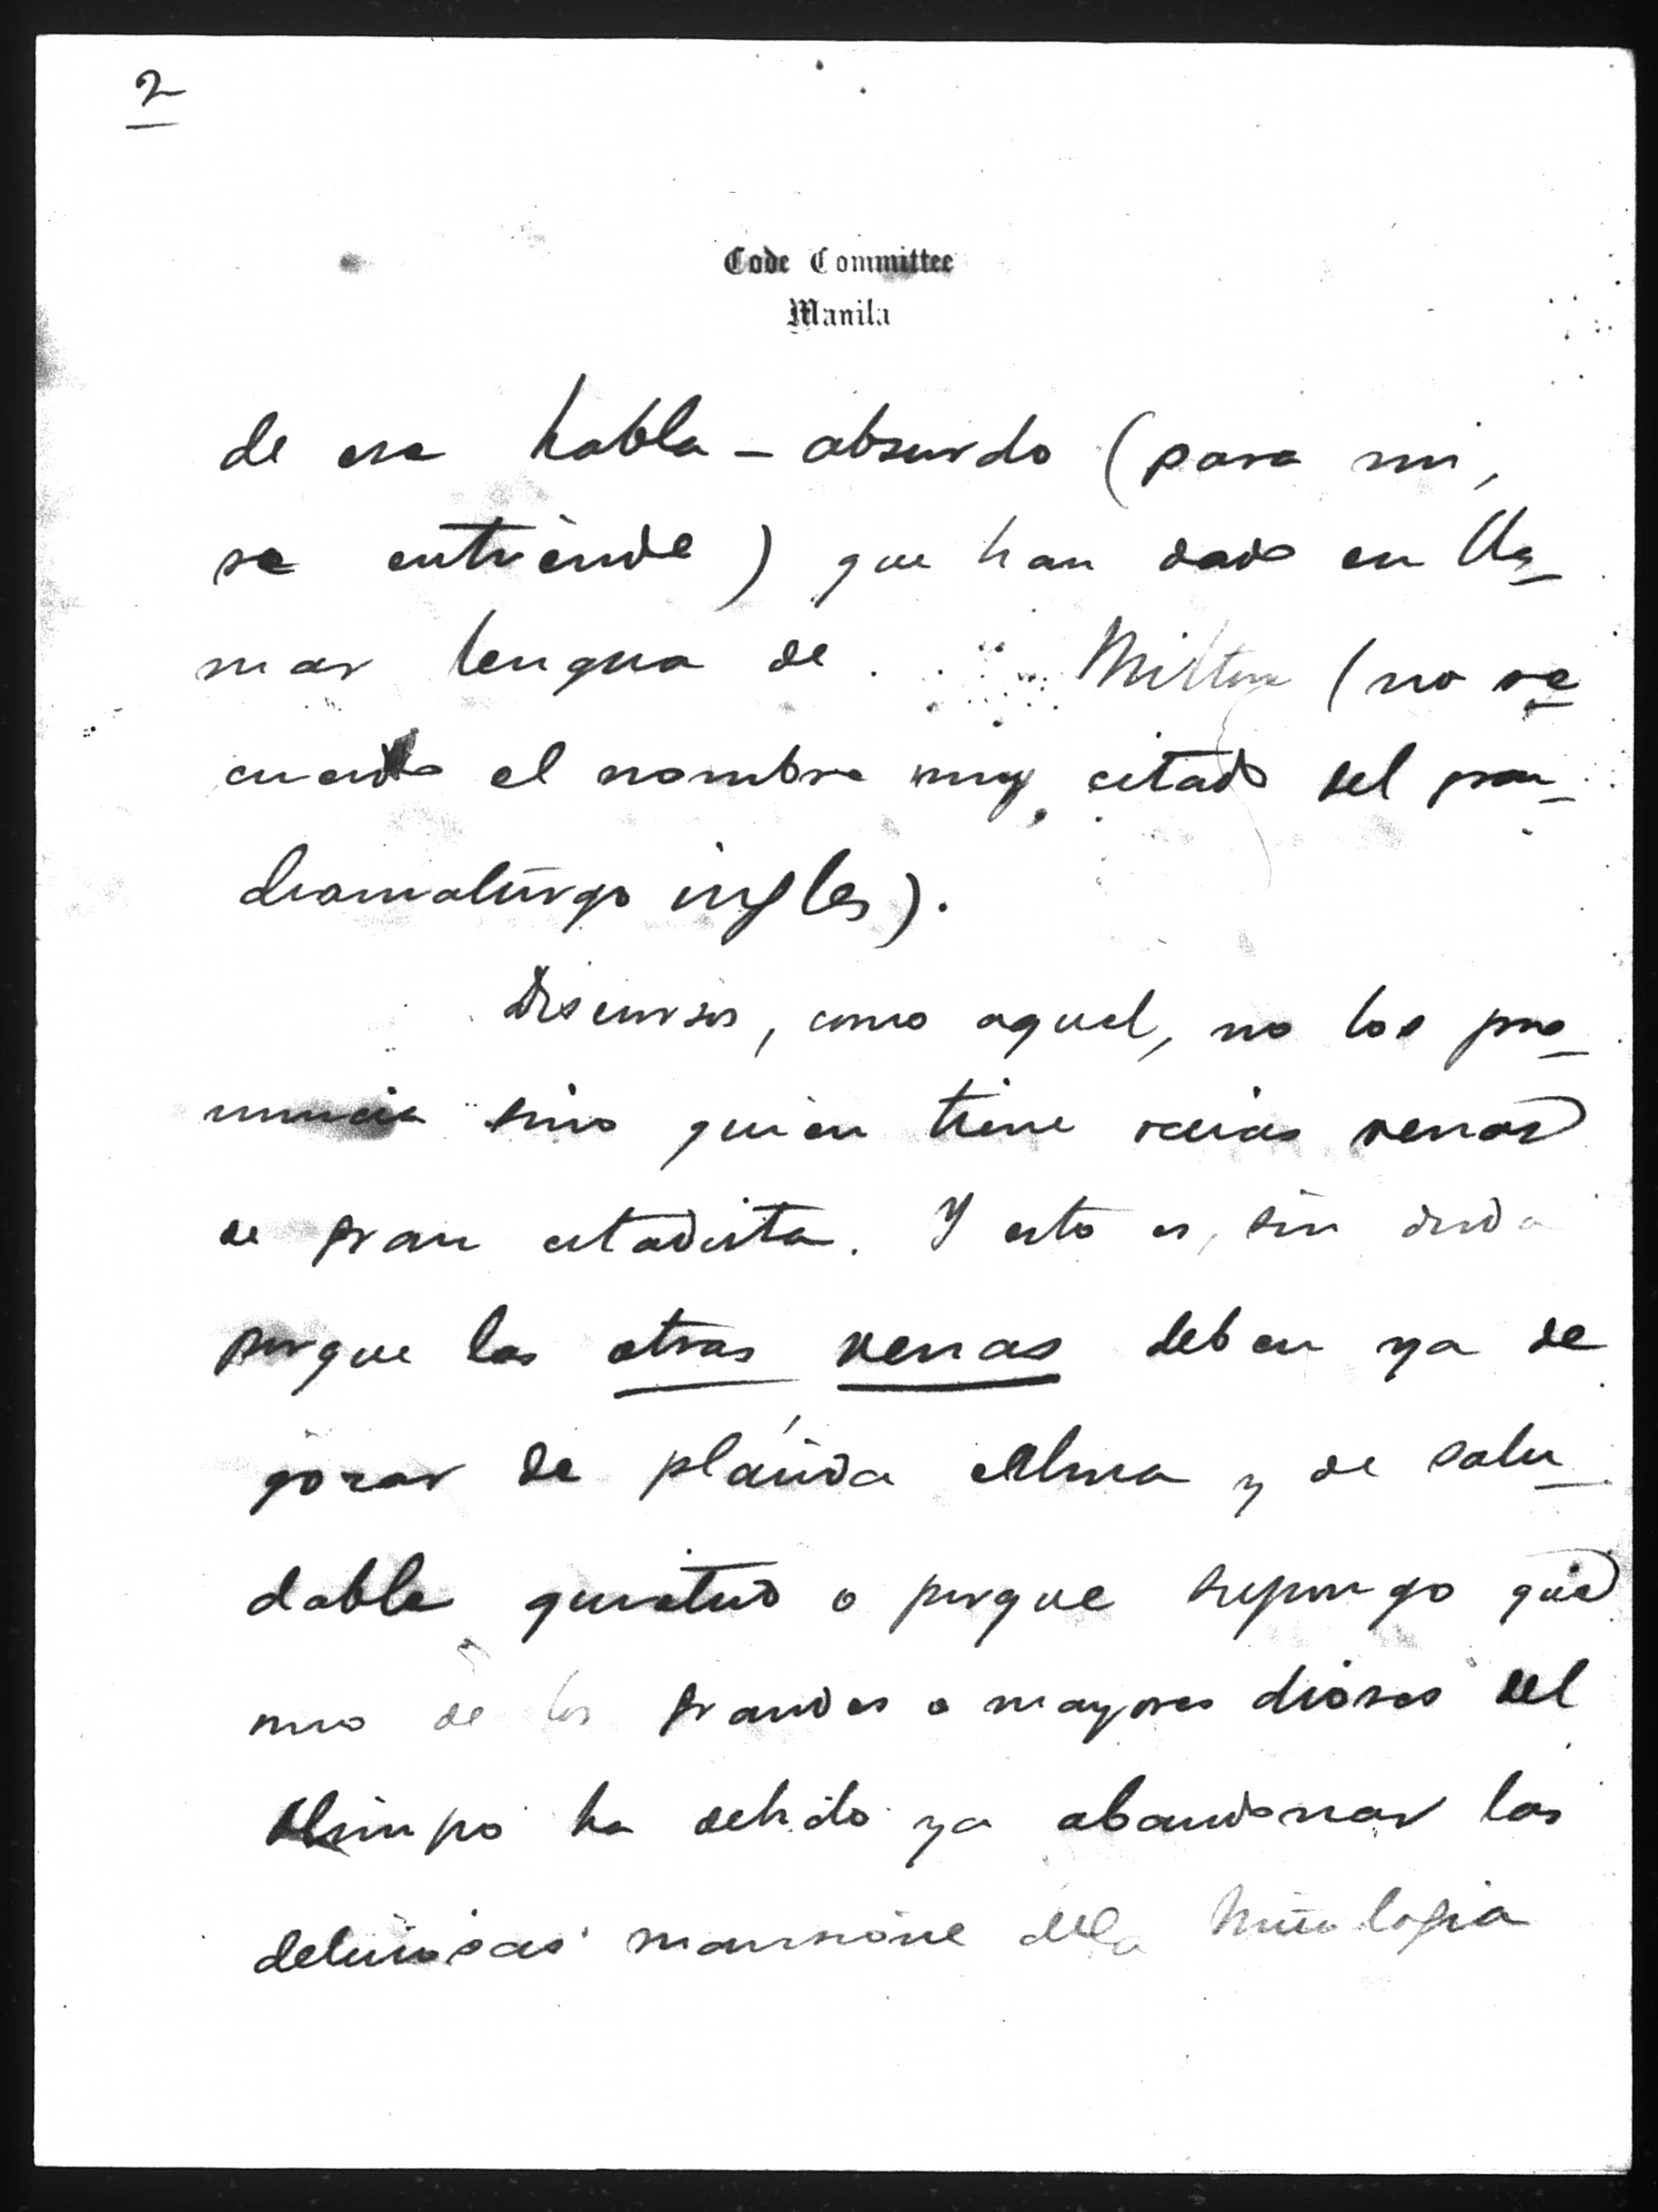 2
Code Committee
Manila
de esa habla - absurdo (para mi,
se entiende) que han dado en lla-
mar lengua de . . . Milton (no re-
cuerdo el nombre muy citado del gran
dramaturgo ingles).
Discursos, como aquel, no los pro-
nuncia sino quien tiene recias venas
de gran estadista. Y esto es, sin duda
porque las otras venas deben ya de
gozar de plácida calma y de salu-
dable quietud o porque supongo que
uno de los grandes o mayores dioses del
Olimpo ha debido ya abandonar las
deliciosas mansione de la Mitologia